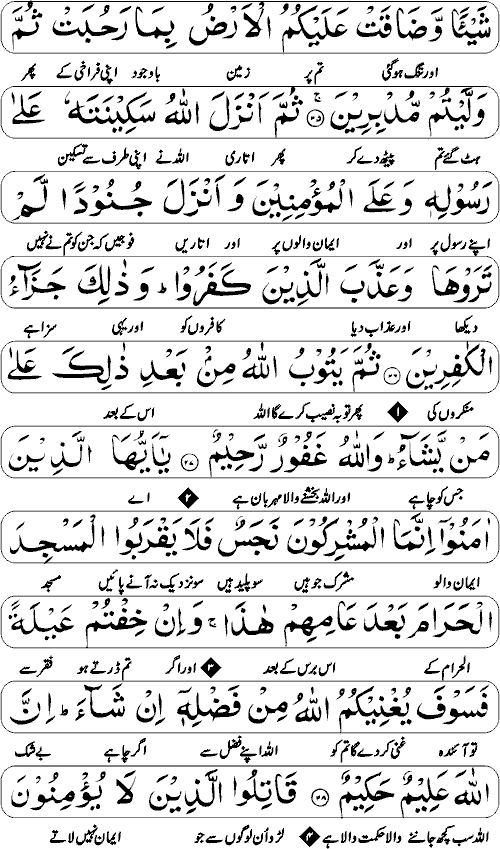 شَيْئًا وَّضَاقَتْ عَلَيْكُمُ الْاَرْضُ بِمَا رَحُبَتْ ثُمَّ
اور تنگ ہوگئی تم پر زمین باوجود اپنی فراخی کے پھر
وَلَّيْتُمْ مُّدْبِرِيْنَ ۚ﴿۲۵﴾ ثُمَّ اَنْزَلَ اللّٰهُ سَكِيْنَتَهٗ عَلٰى
ہٹ گئے تم پیٹھ دے کر پھر اتاری اللہ نے اپنی طرف سے تسکین
رَسُوْلِهٖ وَعَلَى الْمُؤْمِنِيْنَ وَاَنْزَلَ جُنُوْدًا لَّمْ
اپنے رسول پر اور ایمان والوں پر اور اتاریں فوجیں کہ جن کو تم نے نہیں
تَرَوْهَا وَعَذَّبَ الَّذِيْنَ كَفَرُوْا ؕ وَذٰلِكَ جَزَآءُ
دیکھا اور عذاب دیا کافروں کو اور یہی سزا ہے
الْكٰفِرِيْنَ ﴿۲۶﴾ ثُمَّ يَتُوْبُ اللّٰهُ مِنْۢ بَعْدِ ذٰلِكَ عَلٰى
منکروں کی ۱ پھر توبہ نصیب کرے گا اللہ اس کے بعد
مَنْ يَّشَآءُ ؕ وَاللّٰهُ غَفُوْرٌ رَّحِيْمٌ ﴿۲۷﴾ يٰۤاَيُّهَا الَّذِيْنَ
جس کو چاہے اور اللہ بخشنے والا مہربان ہے ۲ اے
اٰمَنُوْۤا اِنَّمَا الْمُشْرِكُوْنَ نَجَسٌ فَلَا يَقْرَبُوا الْمَسْجِدَ
ایمان والو مشرک جو ہیں سو پلید ہیں سو نزدیک نہ آنے پائیں مسجد
الْحَرَامَ بَعْدَ عَامِهِمْ هٰذَا ۚ وَاِنْ خِفْتُمْ عَيْلَةً
الحرام کے اس برس کے بعد ۳ اور اگر تم ڈرتے ہو فقر سے
فَسَوْفَ يُغْنِيْكُمُ اللّٰهُ مِنْ فَضْلِهٖۤ اِنْ شَآءَ ؕ اِنَّ
تو آئندہ غنی کر دے گا تم کو اللہ اپنے فضل سے اگر چاہے بے شک
اللّٰهَ عَلِيْمٌ حَكِيْمٌ ﴿۲۸﴾ قَاتِلُوا الَّذِيْنَ لَا يُؤْمِنُوْنَ
اللہ سب کچھ جاننے والا حکمت والا ہے ۴ لڑو اُن لوگوں سے جو ایمان نہیں لاتے